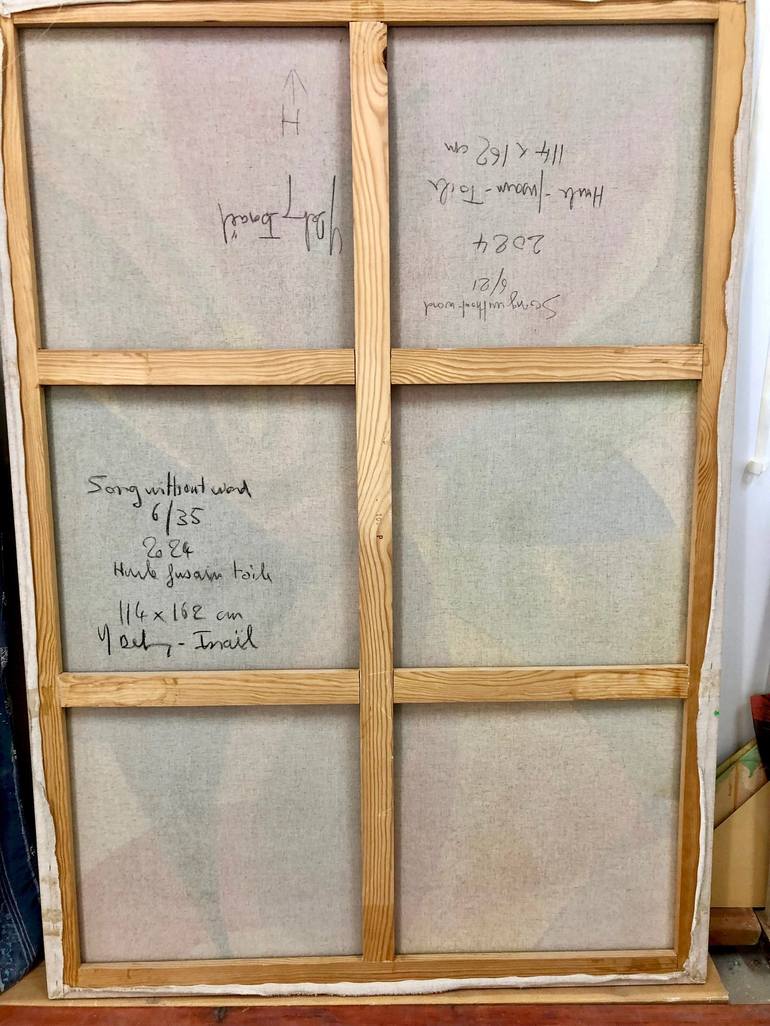 H
Y Israël
Song without word
6/21
2024
Huile-fusain-Toile
114 x 162 cm
Song without word
6/35
2024
Huile fusain toile
114 x 162 cm
Y - Israël